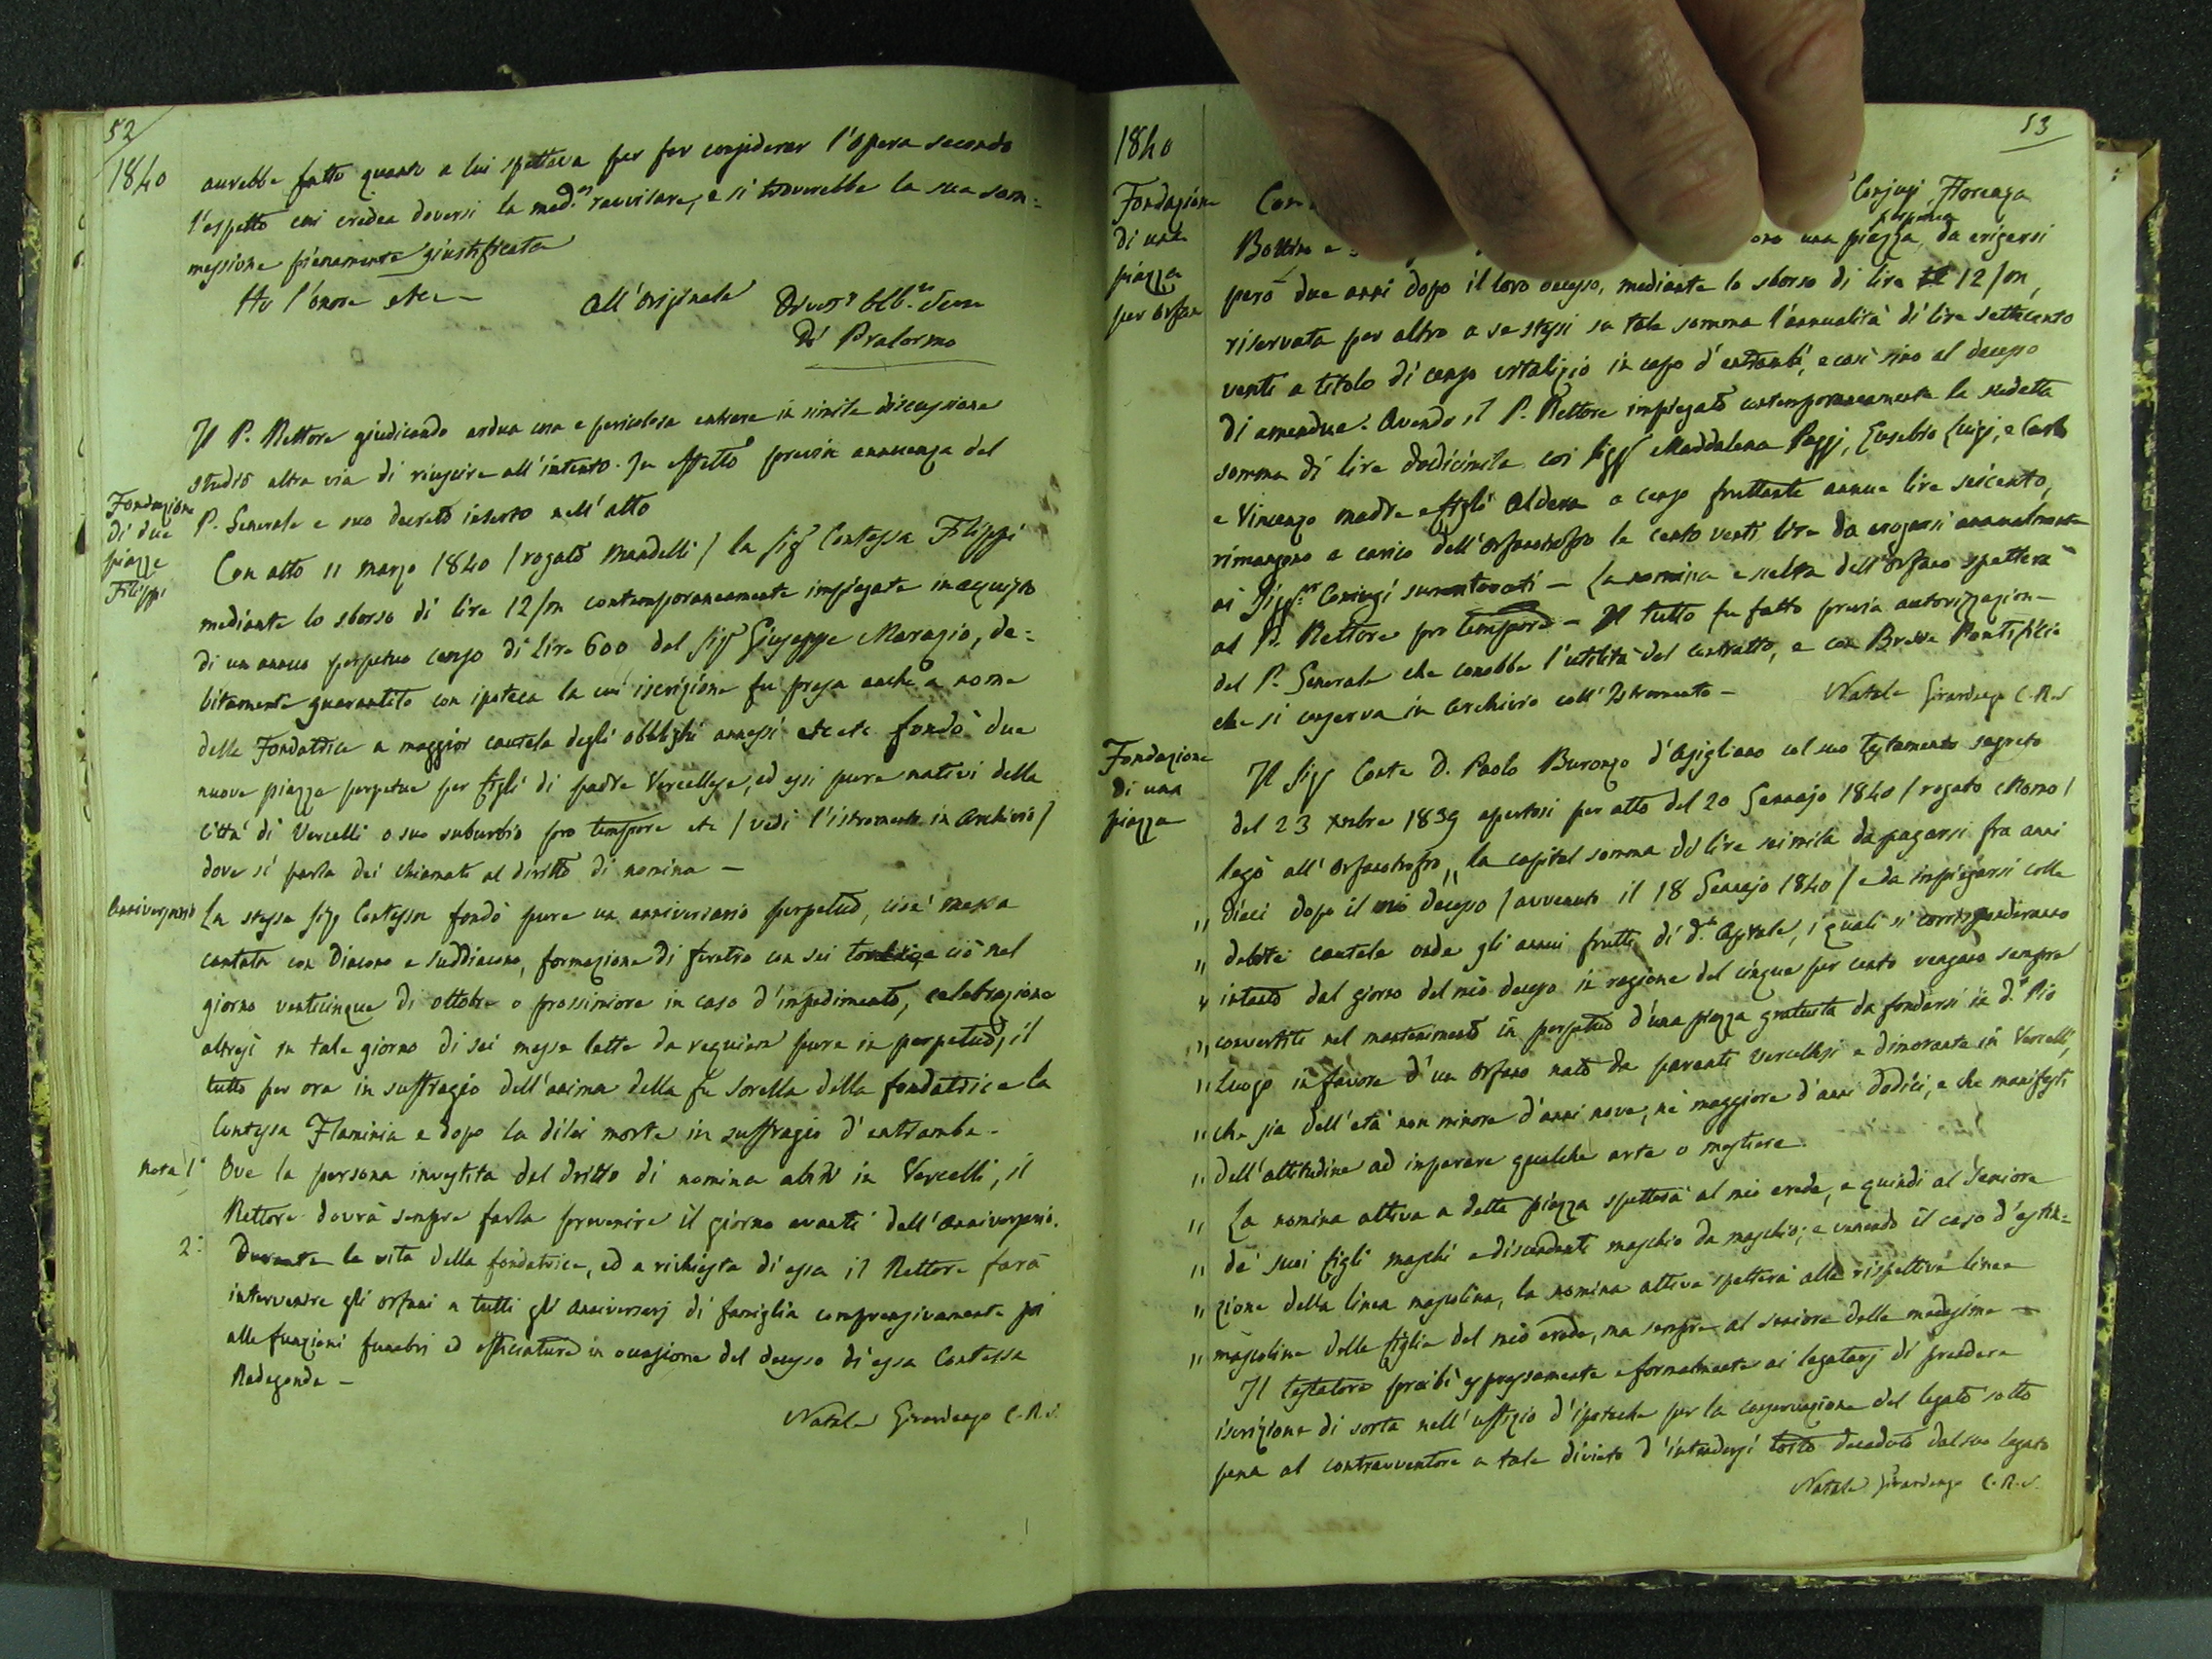 52
1840
avrebbe fatto quanto a lui spettava per far considerar l'opera secondo
l'aspetto cui credea doversi la med.ª ravvisare, e si troverebbe la sua som=
messione pienamente giustificata
Ho l'onore etc. –
All'originale Devot.º Obb.º Serv.
Di Pralormo
Il P. Rettore giudicando ardua cosa e pericolosa entrare in simile discussione
studiò altra via di riuscire all'intento. In effetto previa annuenza del
P. Generale e suo decreto inserto nell'atto
Fondazione
di due
piazze
Filippi
Con atto 11 marzo 1840 / rogato Mandelli / la Sig.ª Contessa Filippi
mediante lo sborso di lire 12/m contemporaneamente impiegate in acquisto
di un annuo perpetuo censo di Lire 600 dal Sig.r Giuseppe Maragio, de=
bitamente guarantito con ipoteca la cui iscrizione fu presa anche a nome
della Fondatrice a maggior cautela degli obblighi annessi etc etc fondò due
nuove piazze perpetue per figli di padre Vercellese, ed essi pure nativi della
Città di Vercelli o suo suburbio pro tempore etc / vedi l'istromento in Archivio /
dove si parla dei chiamati al diritto di nomina –
Anniversario
La stessa Sig.ª Contessa fondò pure un anniversario perpetuo, cioè messa
cantata con Diacono e Suddiacono, formazione di feretro con sei e ciò nel
giorno venticinque di ottobre o prossimiore in caso d'impedimento, celebrazione
altresì in tale giorno di sei messe lette da requiem pure in perpetuo, il
tutto per ora in suffragio dell'anima della fu Sorella della fondatrice la
Contessa Flaminia e dopo la di lei morte in suffragio d'entrambe.
Nota 1ª
Ove la persona investita del dritto di nomina abiti in Vercelli, il
Rettore dovrà sempre farla prevenire il giorno avanti dell'Anniversario.
2ª
Durante la vita della fondatrice, ed a richiesta di essa il Rettore farà
intervenire gli orfani a tutti gli Anniversarj di famiglia comprensivamente poi
alle funzioni funebri ed officiature in occasione del decesso di essa Contessa
Radegonda –
Natale Girardengo C.R.S.
53
1840
Fondazione
di una
piazza
per orfan
Con Conjugi Fiorenza
Bottino e una piazza perpetua da erigersi
però due anni dopo il loro decesso, mediante lo sborso di lire 12/m,
riservata per altro a se stessi su tale somma l'annualità di lire settecento
venti a titolo di censo vitalizio in capo d'entrambi, e così sino al decesso
di amendue. Avendo il P. Rettore impiegato contemporaneamente la sudetta
somma di lire dodicimila coi Sigg.ri Maddalena Poggi, Eusebio Luigi, e Carlo
e Vincenzo madre e figli Aldera a censo fruttante annue lire seicento,
rimangono a carico dell'Orfanotrofio le cento venti lire da erogarsi annualmente
ai Sigg.ri Coniugi summentovati – La nomina e scelta dell'Orfano spetterà
al P. Rettore pro tempore – Il tutto fu fatto previa autorizzazion–
del P. Generale che conobbe l'utilità del contratto, e con Breve Pontificio
che si conserva in Archivio coll'Istromento – Natale Girardengo C.R.S
Fondazione
di una
piazza
Il Sig.r Conte D. Paolo Buronzo d'Asigliano col suo testamento segreto
del 23 Xmbre 1839 apertosi per atto del 20 Gennajo 1840 / rogato Momo /
legò all'Orfanotrofio „ la capital somma di lire seimila da pagarsi fra anni
„ dieci dopo il mio decesso / avvenuto il 18 Gennajo 1840 / e da impiegarsi colle
„ debite cautele onde gli annui frutti di d.º capitale, i quali si corrisponderanno
„ intanto dal giorno del mio decesso in ragione del cinque per cento vengano sempre
„ convertiti nel mantenimento in perpetuo d'una piazza gratuita da fondarsi in d.º Pio
„ Luogo in favore d'un Orfano nato da parenti Vercellesi e dimorante in Vercelli,
„ che sia dell'età non minore d'anni nove, nè maggiore d'anni dodici, e che manifesti
„ dell'attitudine ad imparare qualche arte o mestiere.
„ La nomina attiva a detta piazza spetterà al mio erede, e quindi al Seniore
„ de' suoi figli maschi e discendenti maschio da maschio; e venendo il caso d'estin=
„ zione della linea mascolina, la nomina attiva spetterà alle rispettive linee
„ mascoline delle figlie del mio erede, ma sempre al seniore delle medesime –
Il testatore proibì espressamente e formalmente ai legatarj di prendere
iscrizione di sorta nell'uffizio d'ipoteche per la conservazione del legato sotto
pena al contravventore a tale divieto d'intendersi tosto decaduto dal suo legato
Natale Girardengo C.R.S.